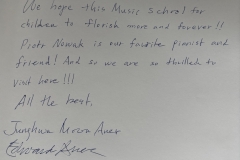 We hope this Music School for
children to florish more and forever!!
Piotr Nowak is our favorite pianist and
friend! And so we are so thrilled to
visit here!!!
All the best,